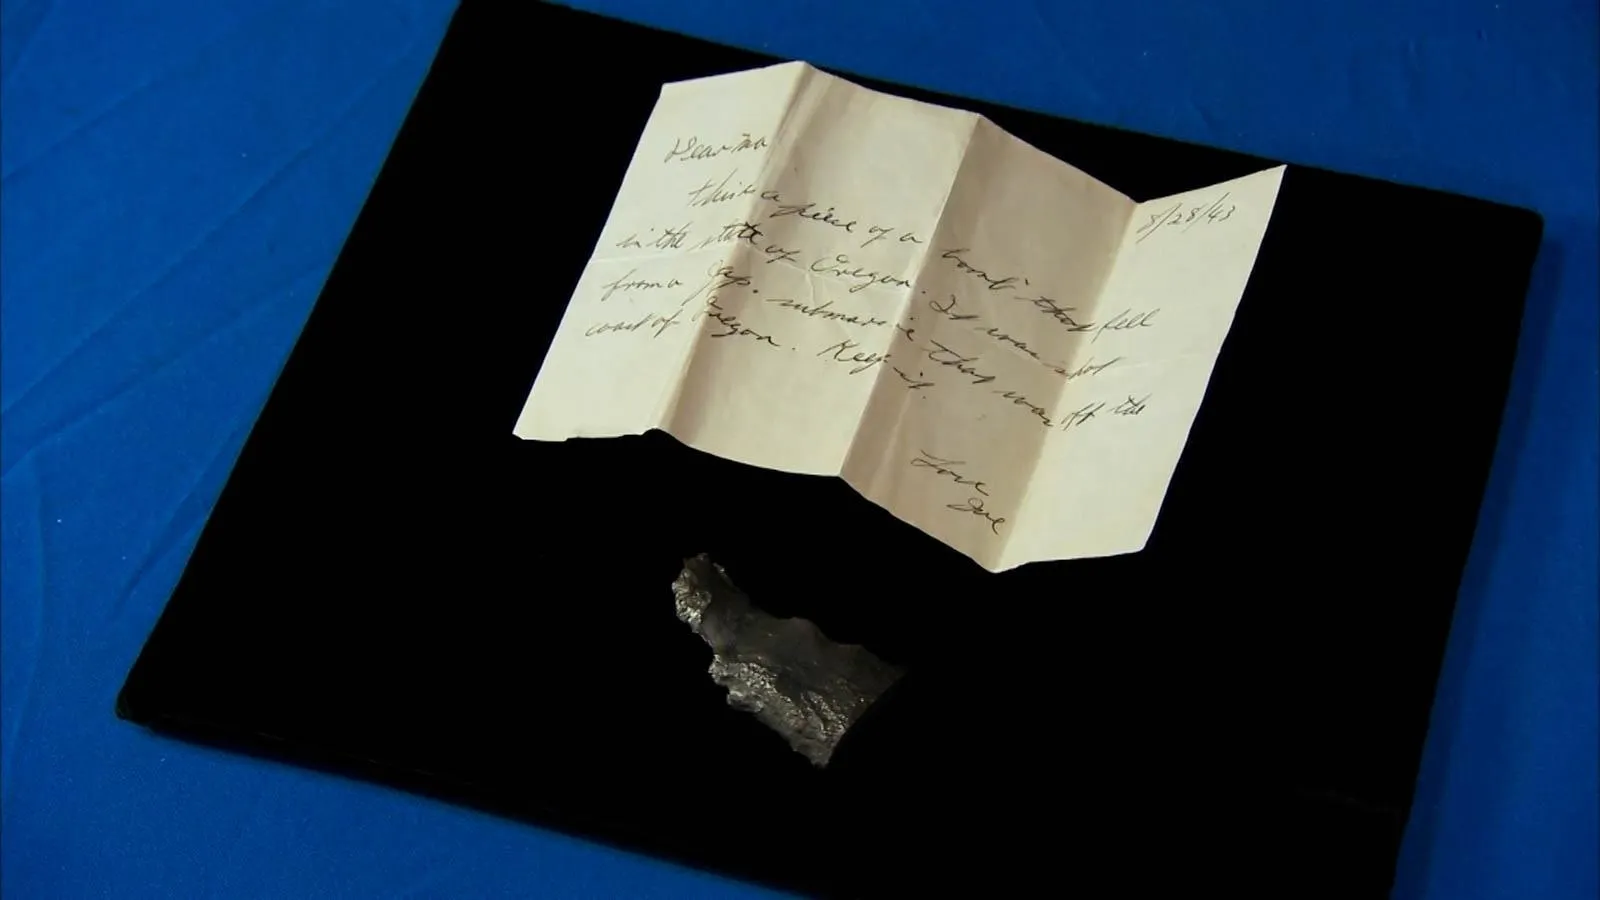 8/28/43
Dear Ma
this is a piece of a bomb that fell
in the state of Oregon. It was shot
from a Jap. submarine that was off the
coast of Oregon. Keep it.
Love
Joe